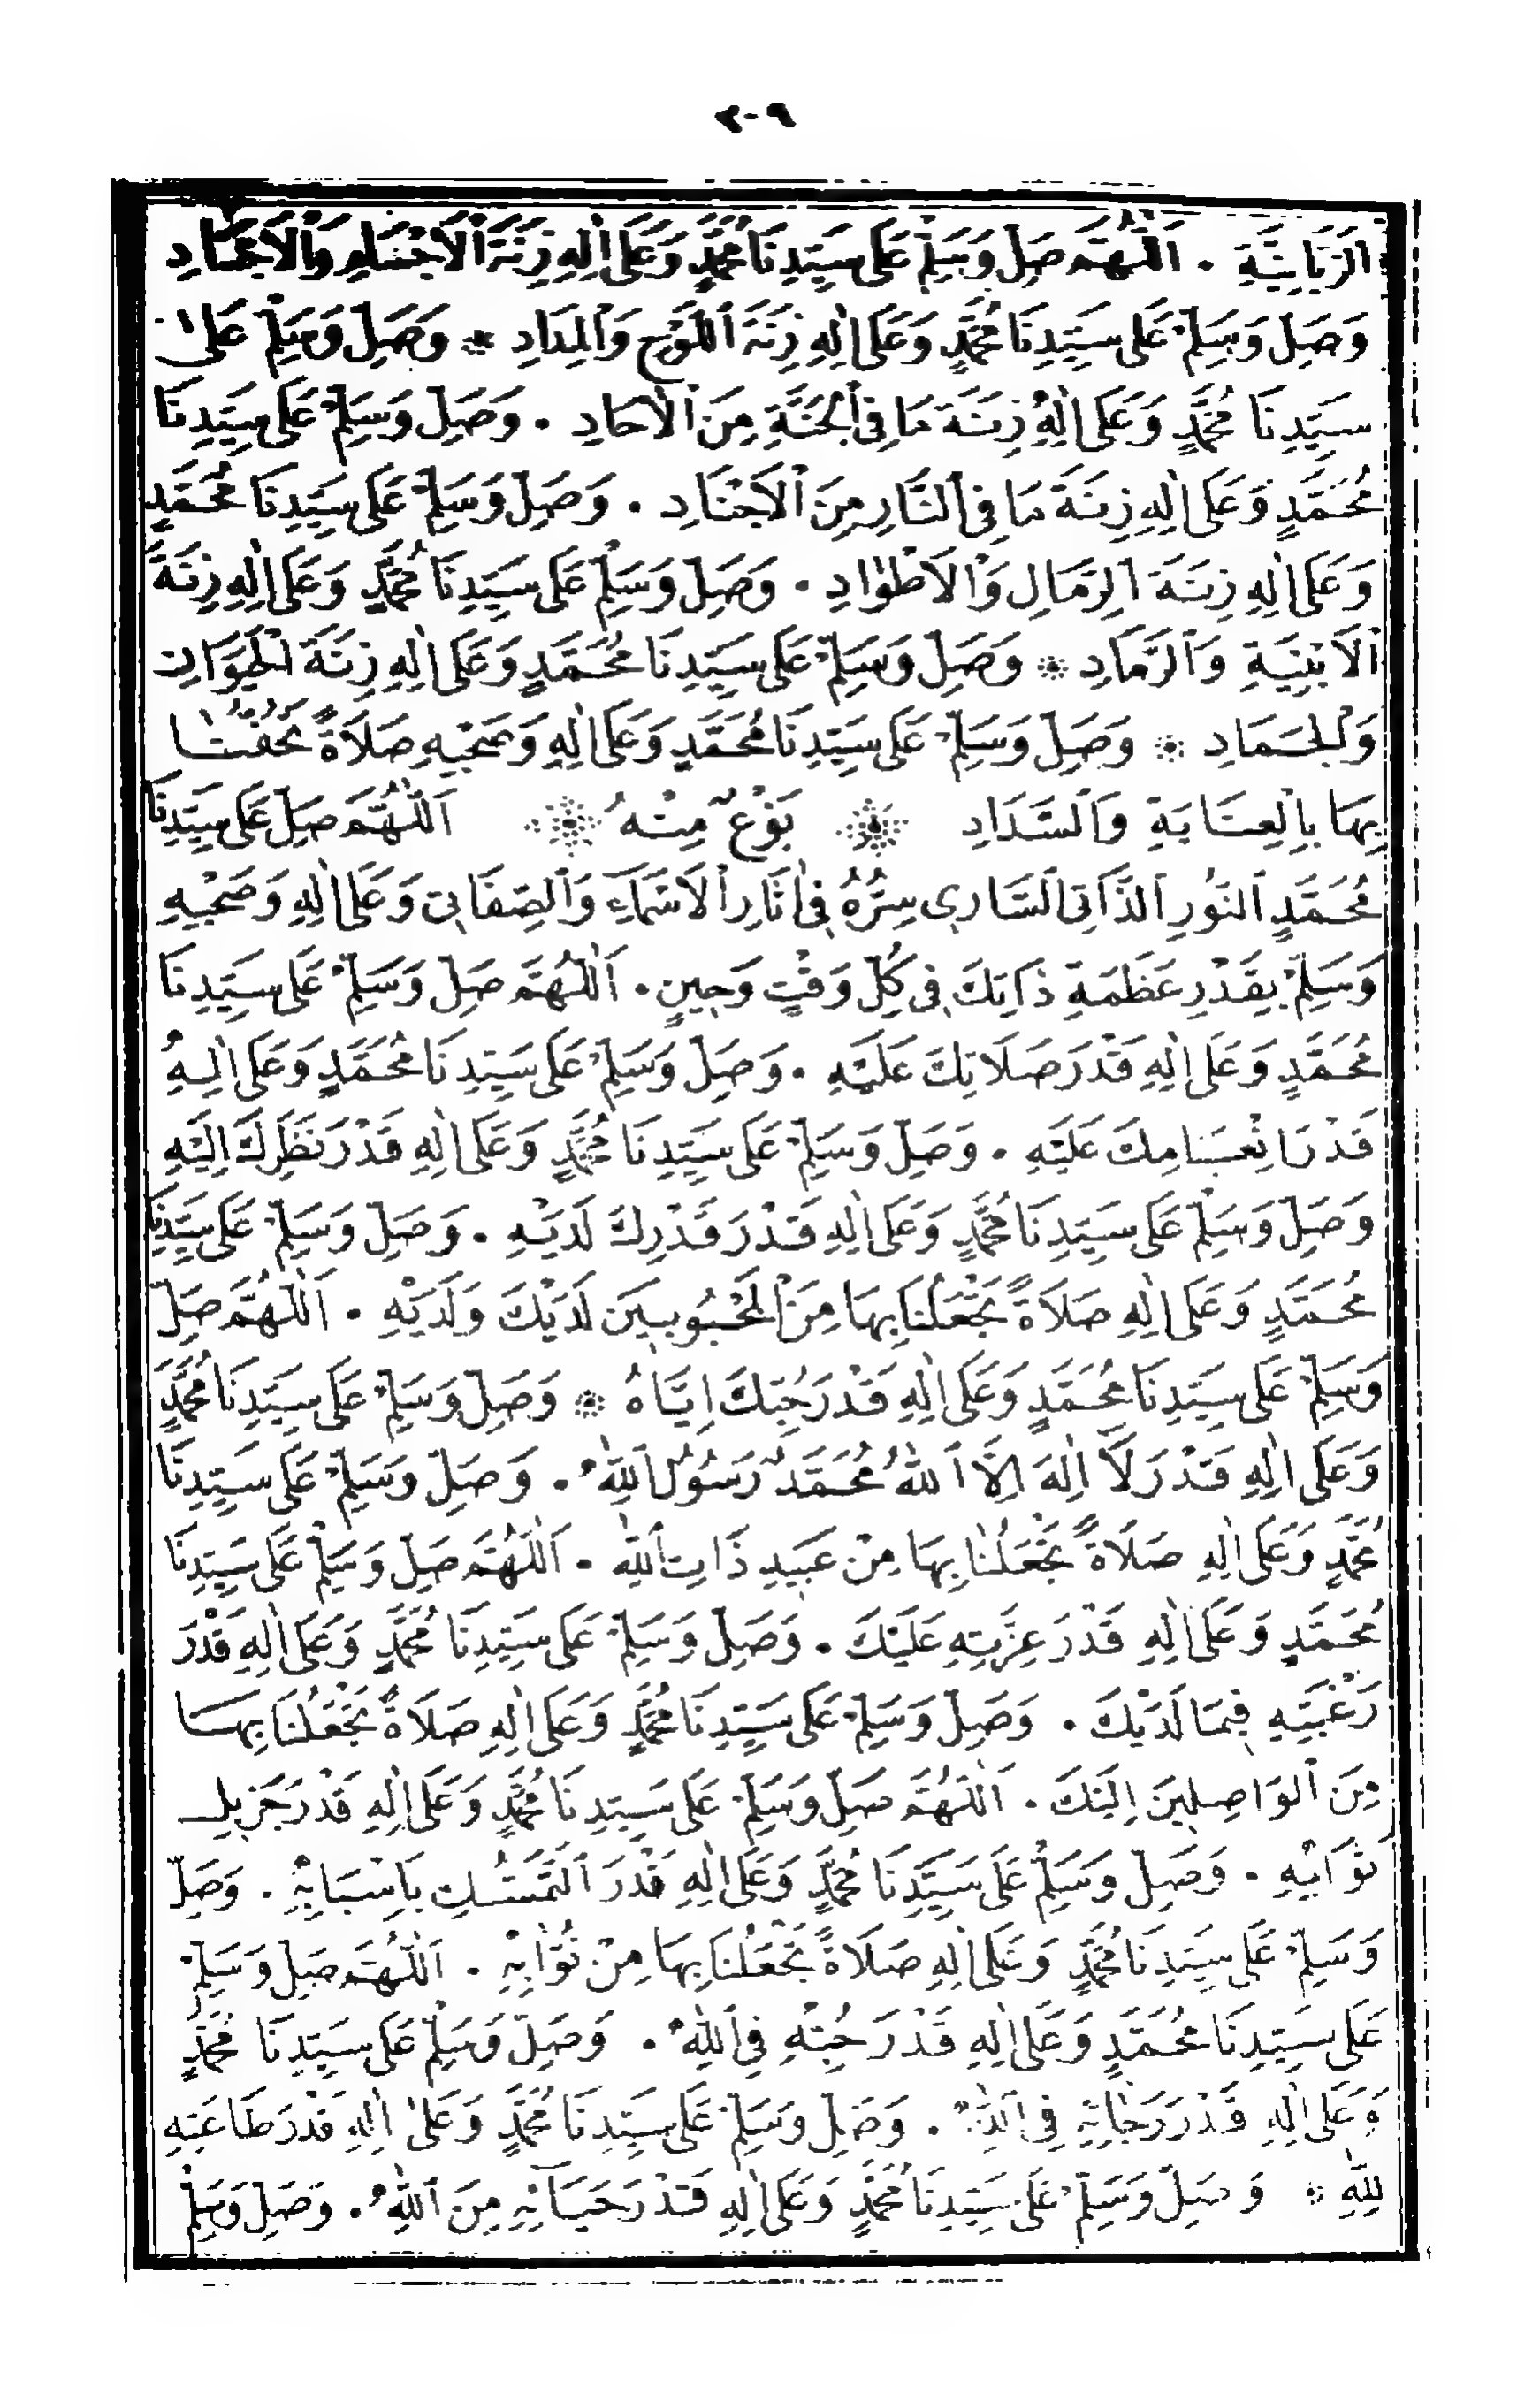 ٢٠٩
اَلزَّبَانِيَةِ . اَللّٰهُمَّ صَلِّ وَسَلِّمْ عَلَى سَيِّدِنَا مُحَمَّدٍ وَعَلَى اٰلِهِ زِنَةَ اْلاَجْسَامِ وَاْلاَجْسَادِ
وَصَلِّ وَسَلِّمْ عَلَى سَيِّدِنَا مُحَمَّدٍ وَعَلَى اٰلِهِ زِنَةَ اَللَّوْحِ وَاَلْمِدَادِ * وَصَلِّ وَسَلِّمْ عَلىٰ
سَيِّدِنَا مُحَمَّدٍ وَعَلَى اٰلِهِ زِنَةَ مَا فِى اْلجَنَّةِ مِنَ اْلاٰحَادِ . وَصَلِّ وَسَلِّمْ عَلَى سَيِّدِنَا
مُحَمَّدٍ وَعَلَى اٰلِهِ زِنَةَ مَا فِى اَلنَّارِ مِنَ اْلاَجْنَادِ . وَصَلِّ وَسَلِّمْ عَلَى سَيِّدِنَا مُحَمَّدٍ
وَعَلَى اٰلِهِ زِنَةَ اَلرِّمَالِ وَاْلاَطْوَادِ . وَصَلِّ وَسَلِّمْ عَلَى سَيِّدِنَا مُحَمَّدٍ وَعَلَى اٰلِهِ زِنَةَ
اْلاَبْنِيَةِ وَاَلرَّمَادِ * وَصَلِّ وَسَلِّمْ عَلَى سَيِّدِنَا مُحَمَّدٍ وَعَلَى اٰلِهِ زِنَةَ اْلحَيَوَانِ
وَاْلجَمَادِ * وَصَلِّ وَسَلِّمْ عَلَى سَيِّدِنَا مُحَمَّدٍ وَعَلَى اٰلِهِ وَصَحْبِهِ صَلَاةً تَحُفُّنَا
بِهَا بِاْلعِنَايَةِ وَاَلسَّدَادِ * نَوْعٌ مِنْهُ * اَللّٰهُمَّ صَلِّ عَلَى سَيِّدِنَا
مُحَمَّدٍ اَلنُّورِ اَلذَّاتِى اَلسَّارِى سِرُّهُ فِى اٰثَارِ اْلاَسْمَآءِ وَاَلصِّفَاتِ وَعَلَى اٰلِهِ وَصَحْبِهِ
وَسَلِّمْ بِقَدْرِ عَظَمَةِ ذَاتِكَ فِى كُلِّ وَقْتٍ وَحِينٍ . اَللّٰهُمَّ صَلِّ وَسَلِّمْ عَلَى سَيِّدِنَا
مُحَمَّدٍ وَعَلَى اٰلِهِ قَدْرَ صَلَاتِكَ عَلَيْهِ . وَصَلِّ وَسَلِّمْ عَلَى سَيِّدِنَا مُحَمَّدٍ وَعَلَى اٰلِهِ
قَدْرَ اِنْعَامِكَ عَلَيْهِ . وَصَلِّ وَسَلِّمْ عَلَى سَيِّدِنَا مُحَمَّدٍ وَعَلَى اٰلِهِ قَدْرَ نَظَرِكَ اِلَيْهِ
وَصَلِّ وَسَلِّمْ عَلَى سَيِّدِنَا مُحَمَّدٍ وَعَلَى اٰلِهِ قَدْرَ قَدْرِكَ لَدَيْهِ . وَصَلِّ وَسَلِّمْ عَلَى سَيِّدِنَا
مُحَمَّدٍ وَعَلَى اٰلِهِ صَلَاةً تَجْعَلُنَا بِهَا مِنَ اْلمَحْبُوبِينَ لَدَيْكَ وَلَدَيْهِ . اَللّٰهُمَّ صَلِّ
وَسَلِّمْ عَلَى سَيِّدِنَا مُحَمَّدٍ وَعَلَى اٰلِهِ قَدْرَ حُبِّكَ اِيَّاهُ * وَصَلِّ وَسَلِّمْ عَلَى سَيِّدِنَا مُحَمَّدٍ
وَعَلَى اٰلِهِ قَدْرَ لَا اِلٰهَ اِلَّا اَللهُ مُحَمَّدٌ رَسُولُ اَللهِ . وَصَلِّ وَسَلِّمْ عَلَى سَيِّدِنَا
مُحَمَّدٍ وَعَلَى اٰلِهِ صَلَاةً تَجْعَلُنَا بِهَا مِنْ عَبِيدِ ذَاتِ اَللهِ . اَللّٰهُمَّ صَلِّ وَسَلِّمْ عَلَى سَيِّدِنَا
مُحَمَّدٍ وَعَلَى اٰلِهِ قَدْرَ عِزَّتِهِ عَلَيْكَ . وَصَلِّ وَسَلِّمْ عَلَى سَيِّدِنَا مُحَمَّدٍ وَعَلَى اٰلِهِ قَدْرَ
رَغْبَتِهِ فِيمَا لَدَيْكَ . وَصَلِّ وَسَلِّمْ عَلَى سَيِّدِنَا مُحَمَّدٍ وَعَلَى اٰلِهِ صَلَاةً تَجْعَلُنَا بِهَا
مِنَ اْلوَاصِلِينَ اِلَيْكَ . اَللّٰهُمَّ صَلِّ وَسَلِّمْ عَلَى سَيِّدِنَا مُحَمَّدٍ وَعَلَى اٰلِهِ قَدْرَ جَزِيلِ
ثَوَابِهِ . وَصَلِّ وَسَلِّمْ عَلَى سَيِّدِنَا مُحَمَّدٍ وَعَلَى اٰلِهِ قَدْرَ اَلتَّمَسُّكِ بِاَسْبَابِهِ . وَصَلِّ
وَسَلِّمْ عَلَى سَيِّدِنَا مُحَمَّدٍ وَعَلَى اٰلِهِ صَلَاةً تَجْعَلُنَا بِهَا مِنْ نُوَّابِهِ . اَللّٰهُمَّ صَلِّ وَسَلِّمْ
عَلَى سَيِّدِنَا مُحَمَّدٍ وَعَلَى اٰلِهِ قَدْرَ حُبِّهِ فِى اَللهِ . وَصَلِّ وَسَلِّمْ عَلَى سَيِّدِنَا مُحَمَّدٍ
وَعَلَى اٰلِهِ قَدْرَ رَجَائِهِ فِى اَللهِ . وَصَلِّ وَسَلِّمْ عَلَى سَيِّدِنَا مُحَمَّدٍ وَعَلىٰ اٰلِهِ قَدْرَ طَاعَتِهِ
لِلّٰهِ * وَصَلِّ وَسَلِّمْ عَلَى سَيِّدِنَا مُحَمَّدٍ وَعَلَى اٰلِهِ قَدْرَ حَيَآئِهِ مِنَ اَللهِ . وَصَلِّ وَسَلِّمْ